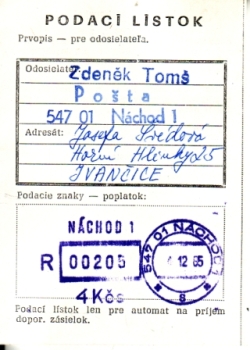 PODACÍ LÍSTOK
Prvopis — pre odosielateľa.
Odosielateľ: Zdeněk Tomš
Pošta
547 01 Náchod 1
Adresát: Josefa
Horní
IVANČICE
Podacie znaky — poplatok:
NÁCHOD 1
R 00205
4 Kčs
547 01 NÁCHOD 1
12 85
8
Podací lístok len pre automat na príjem
dopor. zásielok.